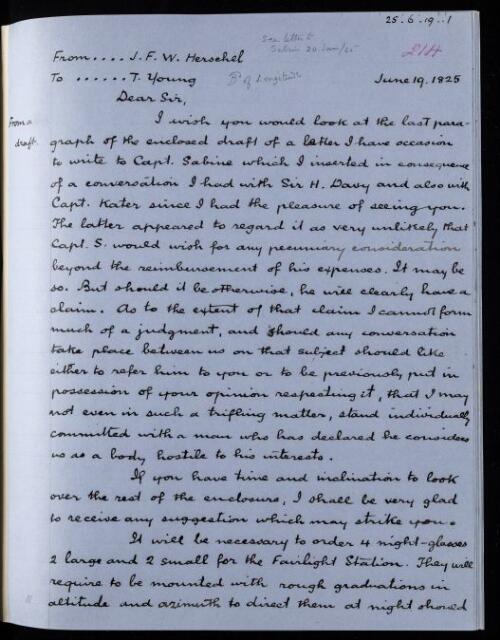 25.6.19..1
See letter to
Sabine 20 June/25
L14
From.... J. F. W. Herschel
To ...... T. Young
Bd of Longitude
June 19. 1825
Dear Sir,
From a
draft.
I wish you would look at the last para-
graph of the enclosed draft of a letter I have occasion
to write to Capt. Sabine which I inserted in consequence
of a conversation I had with Sir H. Davy and also with
Capt. Kater since I had the pleasure of seeing you.
The latter appeared to regard it as very unlikely that
Capt. S. would wish for any pecuniary consideration
beyond the reimbursement of his expenses. It may be
so. But should it be otherwise, he will clearly have a
claim. As to the extent of that claim I cannot form
much of a judgment, and should any conversation
take place between us on that subject should like
either to refer him to you or to be previously put in
possession of your opinion respecting it, that I may
not even in such a trifling matter, stand individually
committed with a man who has declared he considers
us as a body hostile to his interests.
If you have time and inclination to look
over the rest of the enclosure, I shall be very glad
to receive any suggestion which may strike you.
It will be necessary to order 4 night-glasses
2 large and 2 small for the Fairlight Station. They will
require to be mounted with rough graduations in
altitude and azimuth to direct them at night should